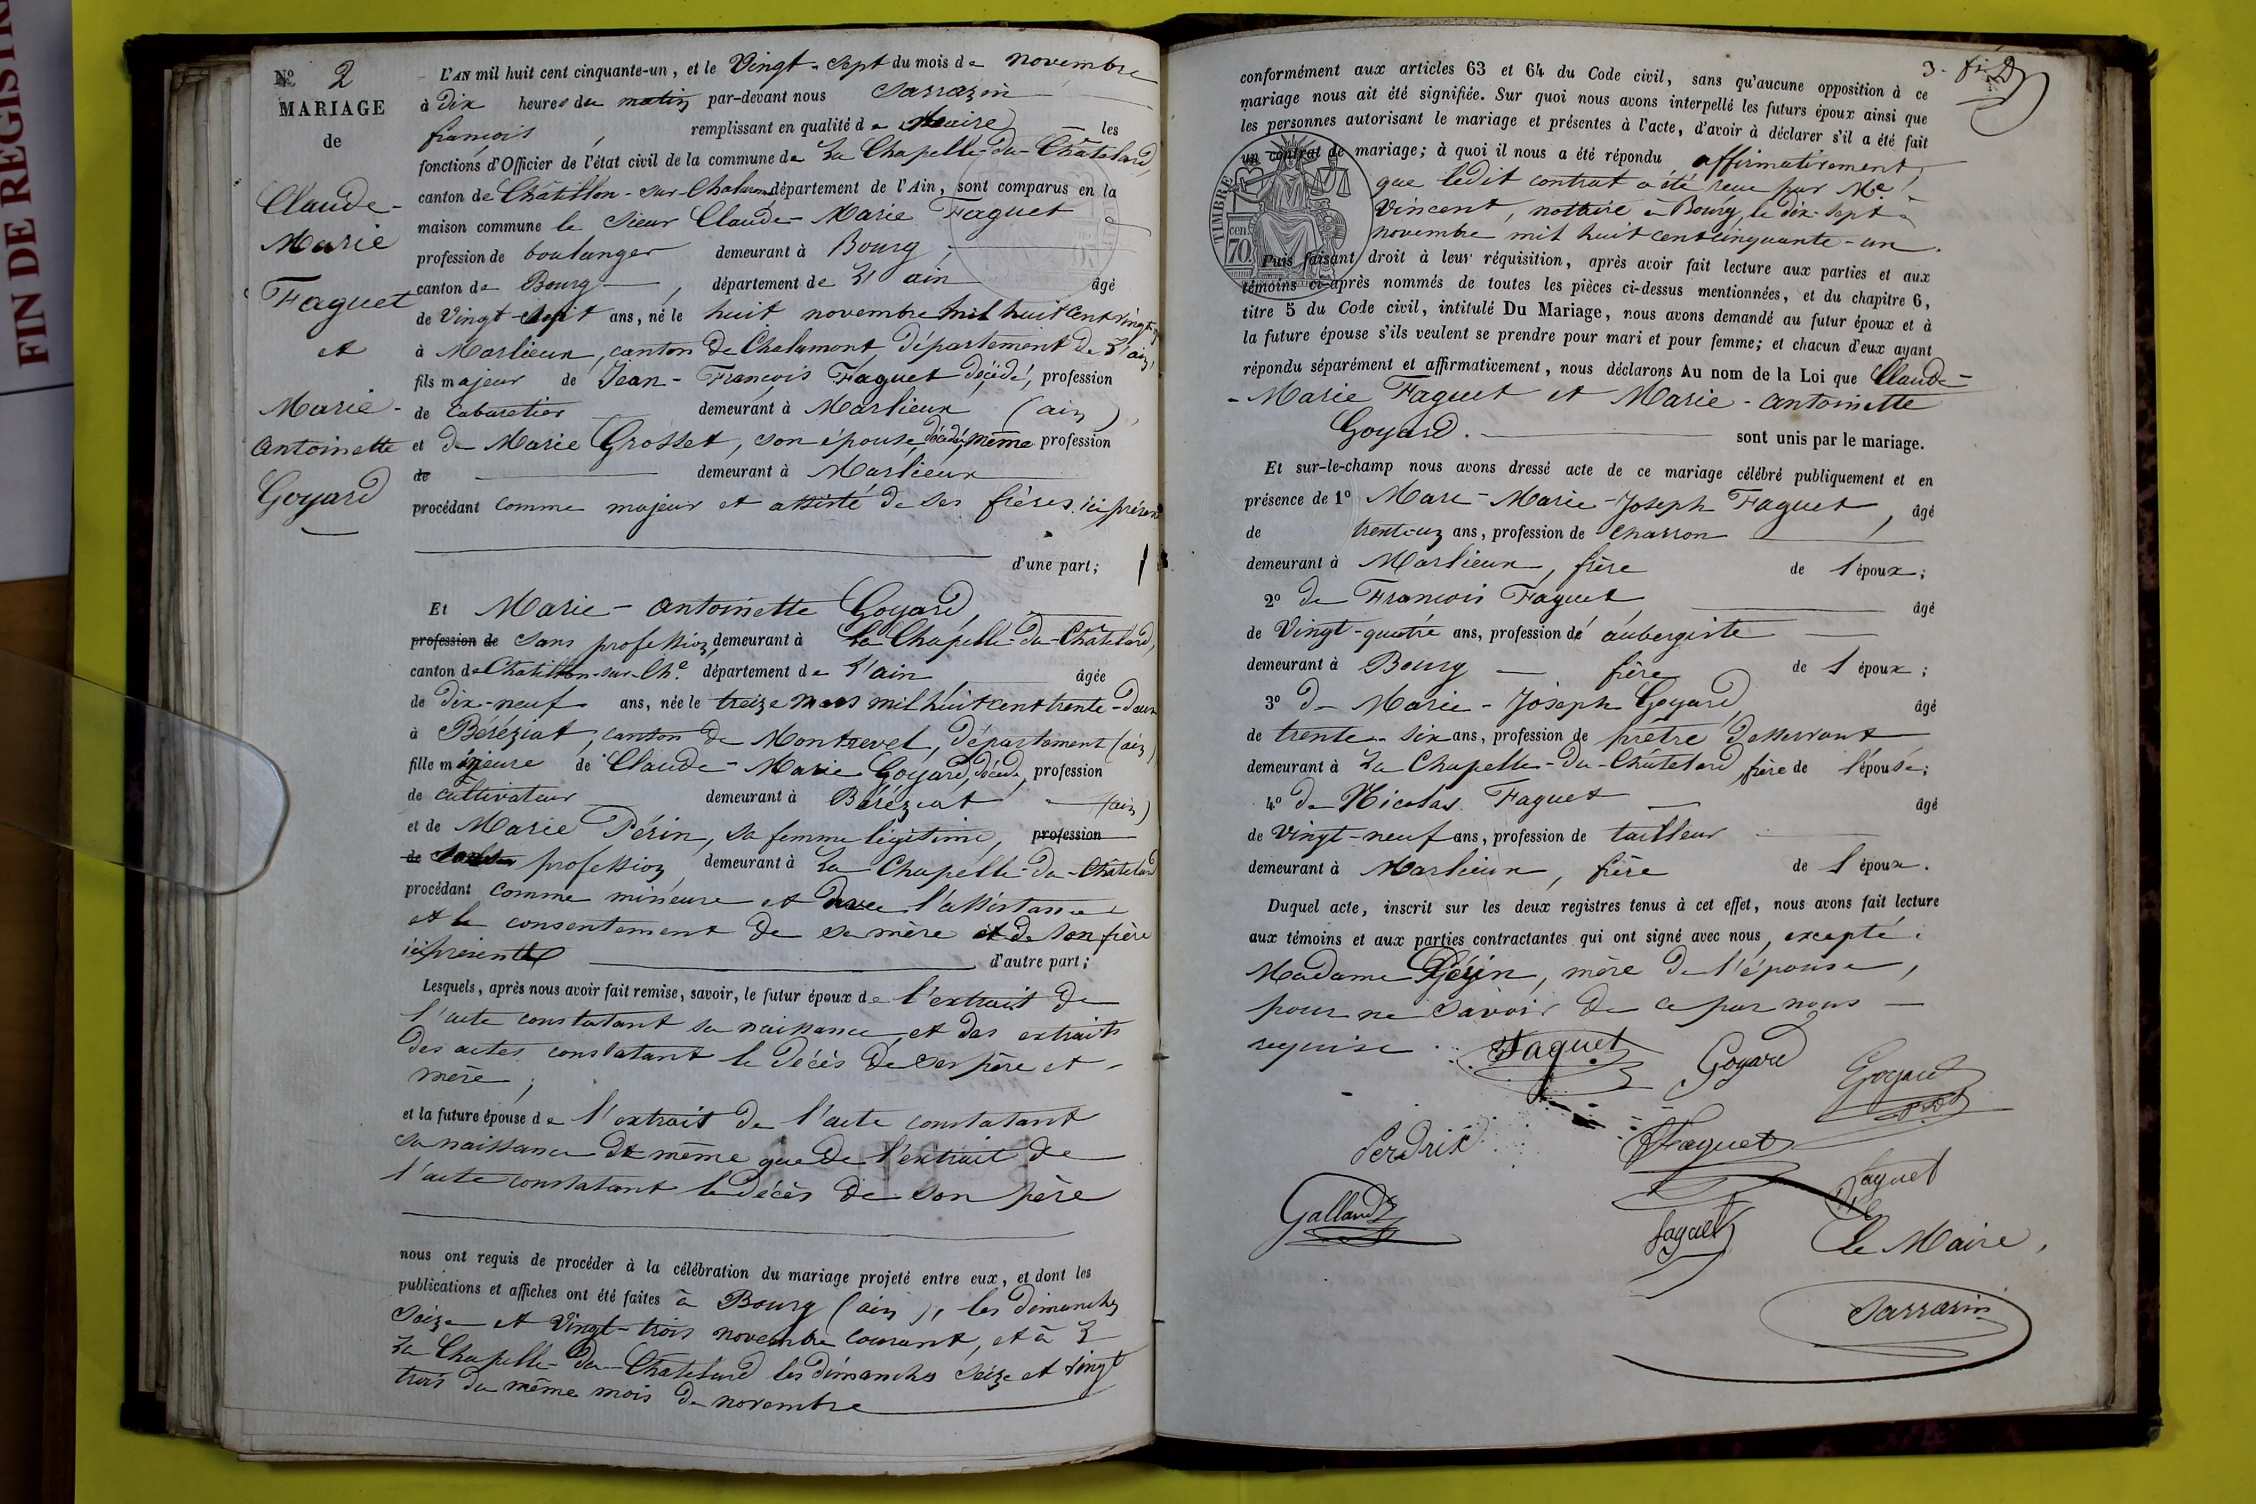 FIN DE REGISTR
Nº 2
MARIAGE
de
Claude-
Marie
Faguet
et
Marie-
antoinette
Goyard
L'AN mil huit cent cinquante-un, et le Vingt-sept du mois de novembre
à Dix heures du matin par-devant nous Sarrazin
françois, remplissant en qualité de Maire les
fonctions d'Officier de l'état civil de la commune de La Chapelle-du-Châtelard,
canton de Châtillon-sur-Chalaronne, département de l'Ain, sont comparus en la
maison commune le sieur Claude-Marie Faguet
profession de boulanger demeurant à Bourg,
canton de Bourg, département de L'ain âgé
de Vingt-sept ans, né le huit novembre mil huit cent vingt
à Marlieux, canton de Chalamont, département de L'ain,
fils majeur de Jean-François Faguet décédé, profession
de cabaretier demeurant à Marlieux (ain),
et de Marie Grosset, son épouse, décédée, même profession
de demeurant à Marlieux
procédant comme majeur et assisté de ses frères ici présents
d'une part;
Et Marie-antoinette Goyard,
profession de sans profession, demeurant à La Chapelle-du-Châtelard,
canton de Chatillon-sur-Ch.e département de L'ain âgée
de dix-neuf ans, née le treize mars mil huit cent trente-deux
à Béréziat, canton de Montrevel, département (ain)
fille mineure de Claude-Marie Goyard, décédé, profession
de cultivateur demeurant à Béréziat (ain)
et de Marie Périn, sa femme légitime, profession
de sans profession, demeurant à La Chapelle-du-Châtelard
procédant comme mineure et avec l'assistance
et le consentement de sa mère et de son frère
ici présents d'autre part;
Lesquels, après nous avoir fait remise, savoir, le futur époux de l'extrait de
l'acte constatant sa naissance, et des extraits
des actes constatant le décès de ses père et
mère;
et la future épouse de l'extrait de l'acte constatant
sa naissance de même que de l'extrait de
l'acte constatant le décès de son père
nous ont requis de procéder à la célébration du mariage projeté entre eux, et dont les
publications et affiches ont été faites à Bourg (ain), les dimanches
seize et vingt-trois novembre courant, et à
La Chapelle-du-Châtelard les dimanches seize et vingt
trois du même mois de novembre
3-
conformément aux articles 63 et 64 du Code civil, sans qu'aucune opposition à ce
mariage nous ait été signifiée. Sur quoi nous avons interpellé les futurs époux ainsi que
les personnes autorisant le mariage et présentes à l'acte, d'avoir à déclarer s'il a été fait
un contrat de mariage; à quoi il nous a été répondu affirmativement,
que ledit contrat a été reçu par Me.
Vincent, notaire à Bourg, le dix-sept
novembre mil huit cent cinquante-un.
TIMBRE
cen.
70.
Puis faisant droit à leur réquisition, après avoir fait lecture aux parties et aux
témoins ci-après nommés de toutes les pièces ci-dessus mentionnées, et du chapitre 6,
titre 5 du Code civil, intitulé Du Mariage, nous avons demandé au futur époux et à
la future épouse s'ils veulent se prendre pour mari et pour femme; et chacun d'eux ayant
répondu séparément et affirmativement, nous déclarons Au nom de la Loi que Claude-
-Marie Faguet et Marie-antoinette
Goyard. sont unis par le mariage.
Et sur-le-champ nous avons dressé acte de ce mariage célébré publiquement et en
présence de 1º Marc-Marie-Joseph Faguet, âgé
de trente-un ans, profession de charron
demeurant à Marlieux, frère de l'époux;
2º de François Faguet, âgé
de Vingt-quatre ans, profession de aubergiste
demeurant à Bourg frère de l'époux;
3º de Marie-Joseph Goyard, âgé
de trente-six ans, profession de prêtre desservant
demeurant à La Chapelle-du-Châtelard frère de l'épouse;
4º de Nicolas Faguet âgé
de vingt-neuf ans, profession de tailleur
demeurant à Marlieux, frère de l'époux.
Duquel acte, inscrit sur les deux registres tenus à cet effet, nous avons fait lecture
aux témoins et aux parties contractantes qui ont signé avec nous, excepté
Madame Périn, mère de l'épouse,
pour ne savoir de ce par nous
requise.
Faguet
Goyard
Goyard
Perdrix
Faguet
Faguet
Galland
faguet
Le Maire,
Sarrazin